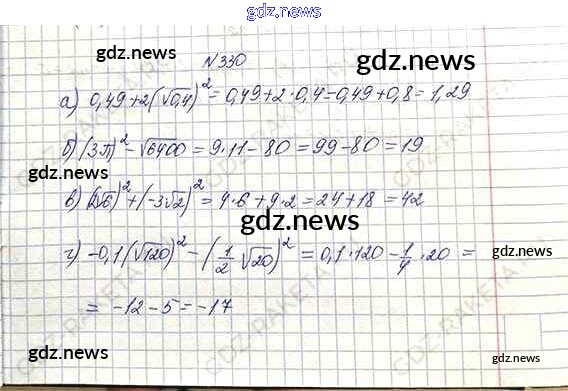 gdz.news
№330
gdz.news
gdz.news
а) 0,49+2(√0,4)² = 0,49+2·0,4=0,49+0,8=1,29
б) (3√11)² - √6400 = 9·11-80=99-80=19
gdz.news
gdz.news
в) (2√6)² + (-3√2)² = 4·6+9·2=24+18=42
gdz.news
г) -0,1(√120)² - (1/2 √20)² = 0,1·120 - 1/4 · 20 =
gdz.news
= -12-5=-17
gdz.news
gdz.news